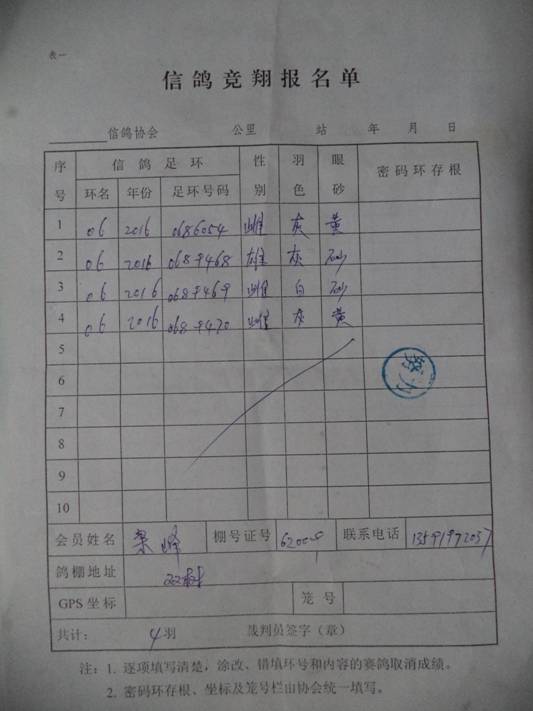 表一
信鸽竞翔报名单
信鸽协会 公里 站 年 月 日
序号 信鸽足环 性别 羽色 眼砂 密码环存根
环名 年份 足环号码
1 06 2016 0686054 雌 灰 黄
2 06 2016 0689468 雄 灰 砂
3 06 2016 0689469 雌 白 砂
4 06 2016 0689470 雌 灰 黄
5
6
7
8
9
10
会员姓名 梁峰 棚号证号 联系电话
鸽棚地址 双树
GPS坐标 笼号
共计: 4羽 裁判员签字(章)
注:1. 逐项填写清楚,涂改、错填环号和内容的赛鸽取消成绩。
2. 密码环存根、坐标及笼号栏由协会统一填写。